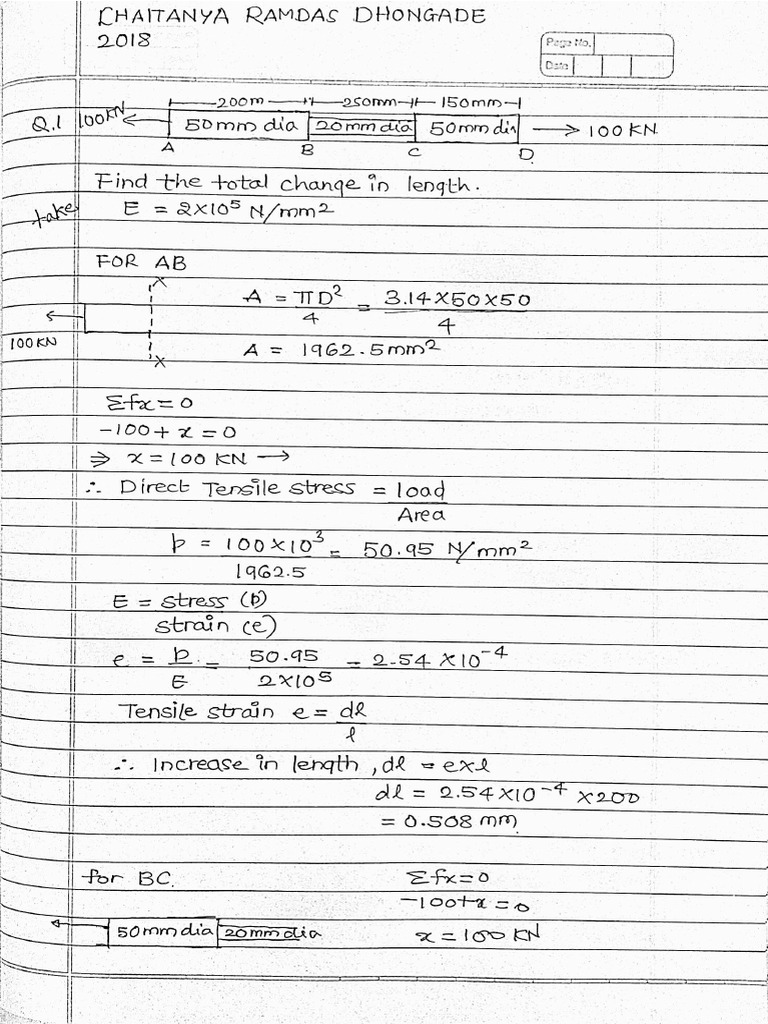 CHAITANYA RAMDAS DHONGADE
2018
Page No.
Date
200m 250mm 150mm
Q.1 100KN 50mm dia 20mm dia 50mm dia 100 KN
A B C D
Find the total change in length.
take E = 2×10⁵ N/mm2
FOR AB
x
A = πD²/4 = 3.14×50×50/4
100KN
A = 1962.5mm²
x
Σfx=0
-100+ x = 0
⇒ x = 100 KN →
∴ Direct Tensile stress = load/Area
p = 100×10³/1962.5 = 50.95 N/mm2
E = stress (p)/strain (e)
e = p/E = 50.95/2×10⁵ = 2.54 ×10⁻⁴
Tensile strain e = dl/l
∴ Increase in length, dl = e×l
dl = 2.54×10⁻⁴ ×200
= 0.508 mm
for BC. Σfx=0
-100+x = 0
50mm dia 20mm dia x = 100 KN